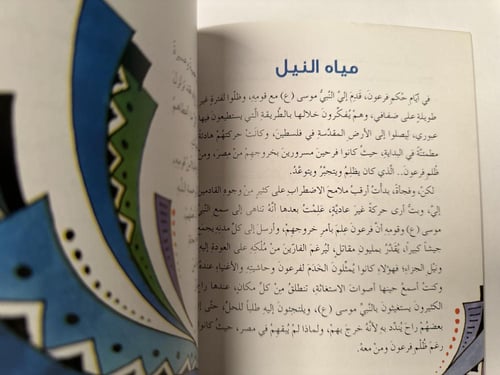 مياه النيل
في أيّامِ حُكمِ فرعونَ، قَدِمَ إليَّ النَّبيُّ موسى (ع) مع قومِهِ، وظلّوا لفترةٍ غيرِ
طويلةٍ على ضفافي، وهمْ يُفكّرونَ خلالها بالطّريقةِ الّتي يستطيعونَ فيها
عبوري، ليصلوا إلى الأرضِ المقدّسةِ في فلسطين، وكانتْ حركتُهُمْ هادئةً
مطمئنّةً في البداية، حيثُ كانوا فرحينَ مسرورينَ بخروجِهِمْ منْ مصرَ، ومن
ظُلمِ فرعونَ.. الّذي كان يظلِمُ ويتجبَّرُ ويتوعَّدُ.
لكنْ، وفجأةً، بدأتُ أرقبُ ملامحَ الاضطرابِ على كثيرٍ منْ وجوهِ القادمينَ
إليَّ، وبتُّ أرى حركةً غيرَ عاديّةٍ، عَلِمْتُ بعدها أنّهُ تناهى إلى سمعِ النّبيِّ
موسى (ع) وقومِهِ أنّ فرعونَ علِمَ بأمرِ خروجِهِمْ، وأرسلَ إلى كلِّ مدينةٍ يجمعُ
جيشاً كبيراً، يُقدَّرُ بمليونِ مقاتلٍ، ليُرغمَ الفارّينَ منْ مُلْكِهِ على العودةِ إليهِ
ونيلِ الجزاءِ؛ فهؤلاءِ كانوا يُمثّلونَ الخدَمَ لفرعونَ وحاشيتِهِ والأغنياءِ عندهُ
وكنتُ أسمعُ حينها أصواتَ الاستغاثةِ، تنطلقُ منْ كلِّ مكانٍ، عندها راحَ
الكثيرونَ يستغيثونَ بالنّبيِّ موسى (ع)، ويلتجئونَ إليهِ طلباً للحلِّ، حتّى
بعضُهُمْ راحَ يُندّدُ بهِ لأنّهُ خرجَ بهمْ، ولماذا لمْ يُبقِهِمْ في مصرَ، حيثُ كانوا
رغمَ ظُلْمِ فرعونَ ومنْ معهُ.